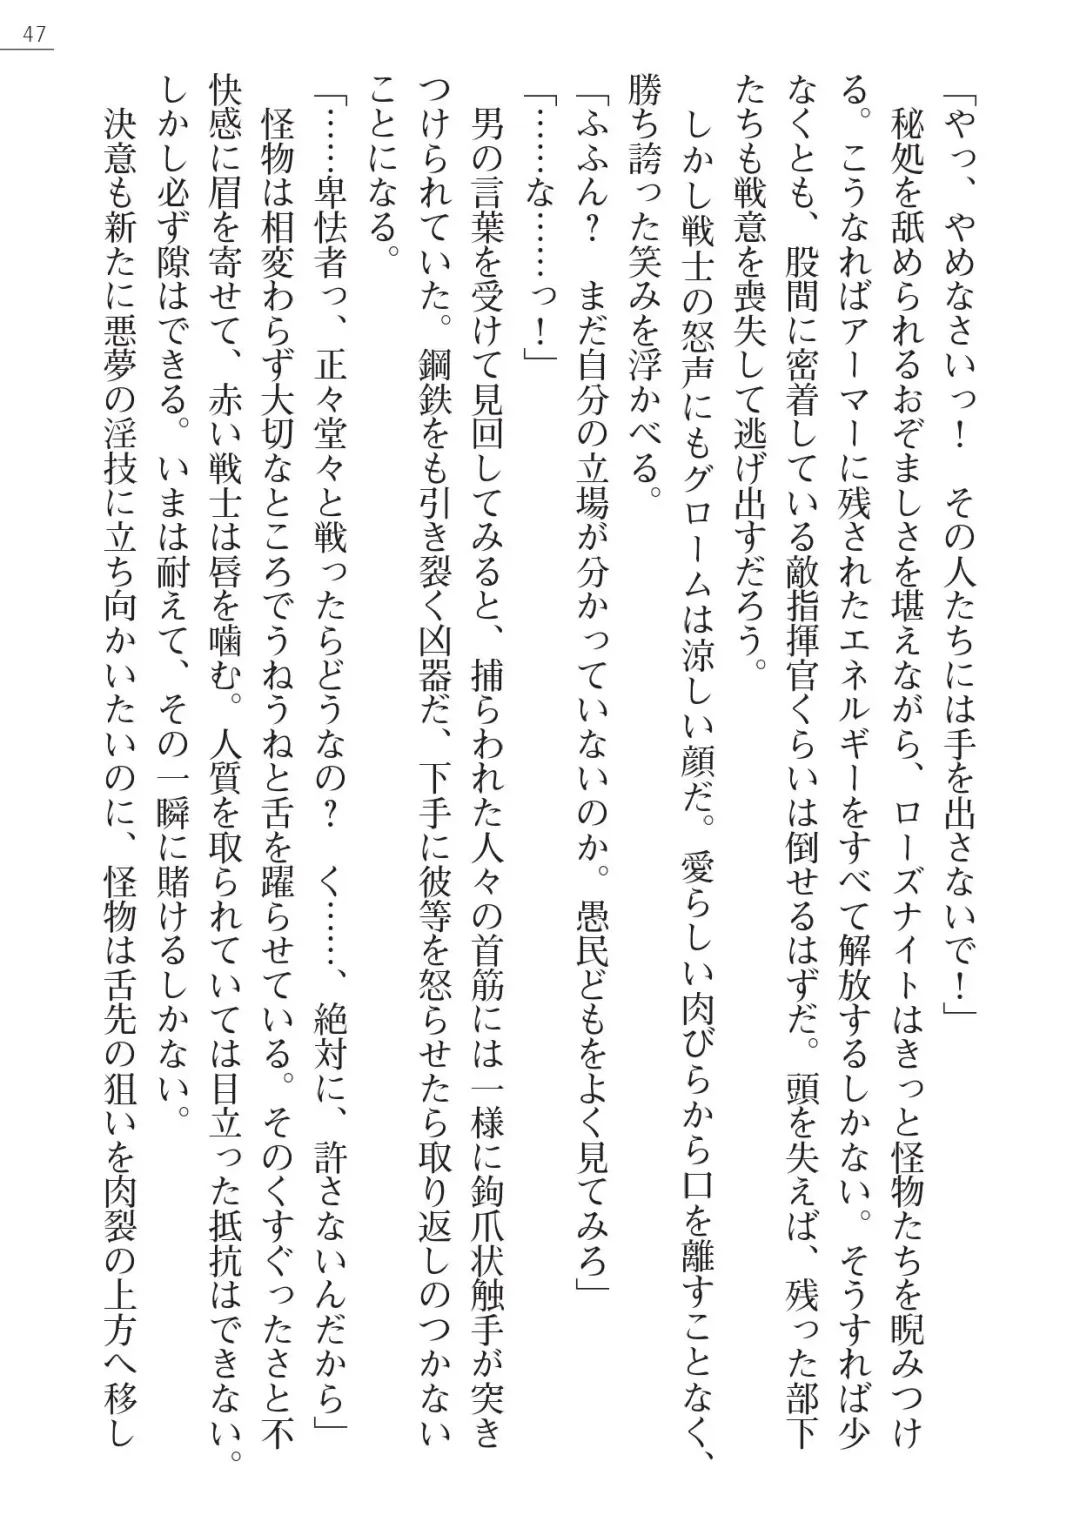 47
「やっ、やめなさいっ！　その人たちには手を出さないで！」
　秘処を舐められるおぞましさを堪えながら、ローズナイトはきっと怪物たちを睨みつけ
る。こうなればアーマーに残されたエネルギーをすべて解放するしかない。そうすれば少
なくとも、股間に密着している敵指揮官くらいは倒せるはずだ。頭を失えば、残った部下
たちも戦意を喪失して逃げ出すだろう。
　しかし戦士の怒声にもグロームは涼しい顔だ。愛らしい肉びらから口を離すことなく、
勝ち誇った笑みを浮かべる。
「ふふん？　まだ自分の立場が分かっていないのか。愚民どもをよく見てみろ」
「……な……っ！」
　男の言葉を受けて見回してみると、捕らわれた人々の首筋には一様に鉤爪状触手が突き
つけられていた。鋼鉄をも引き裂く凶器だ、下手に彼等を怒らせたら取り返しのつかない
ことになる。
「……卑怯者っ、正々堂々と戦ったらどうなの？　く……、絶対に、許さないんだから」
　怪物は相変わらず大切なところでうねうねと舌を躍らせている。そのくすぐったさと不
快感に眉を寄せて、赤い戦士は唇を噛む。人質を取られていては目立った抵抗はできない。
しかし必ず隙はできる。いまは耐えて、その一瞬に賭けるしかない。
　決意も新たに悪夢の淫技に立ち向かいたいのに、怪物は舌先の狙いを肉裂の上方へ移し